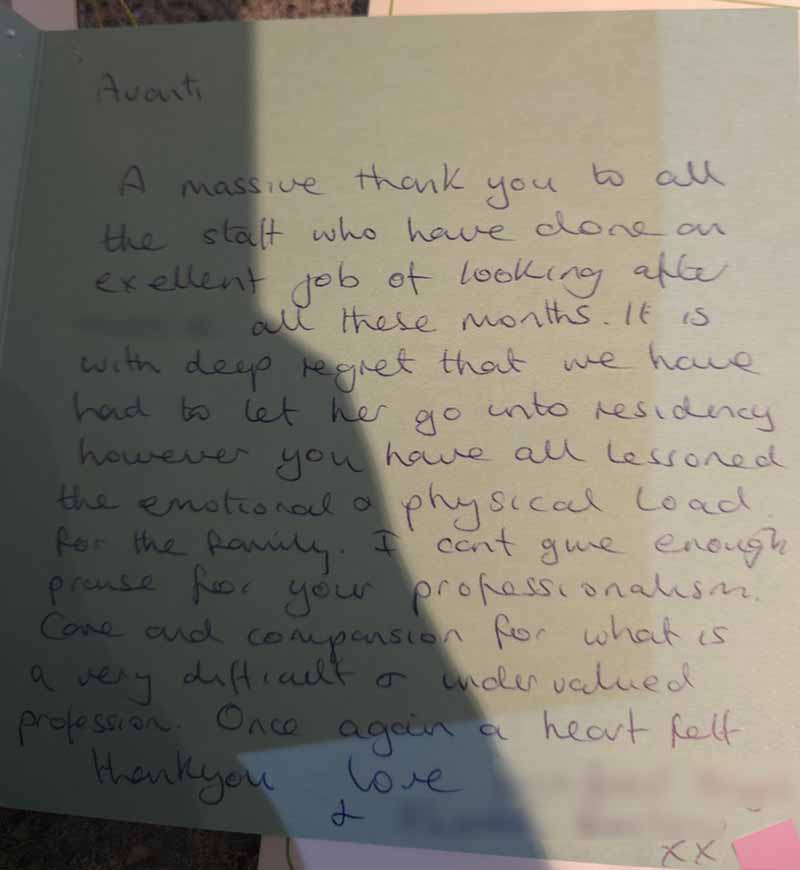 Avanti
A massive thank you to all
the staff who have done an
exellent job of looking after
all these months. It is
with deep regret that we have
had to let her go into residency
however you have all lessoned
the emotional & physical load
for the family. I cant give enough
praise for your professionalism.
Care and compansion for what is
a very difficult & undervalued
profession. Once again a heart felt
thankyou love
&
xx